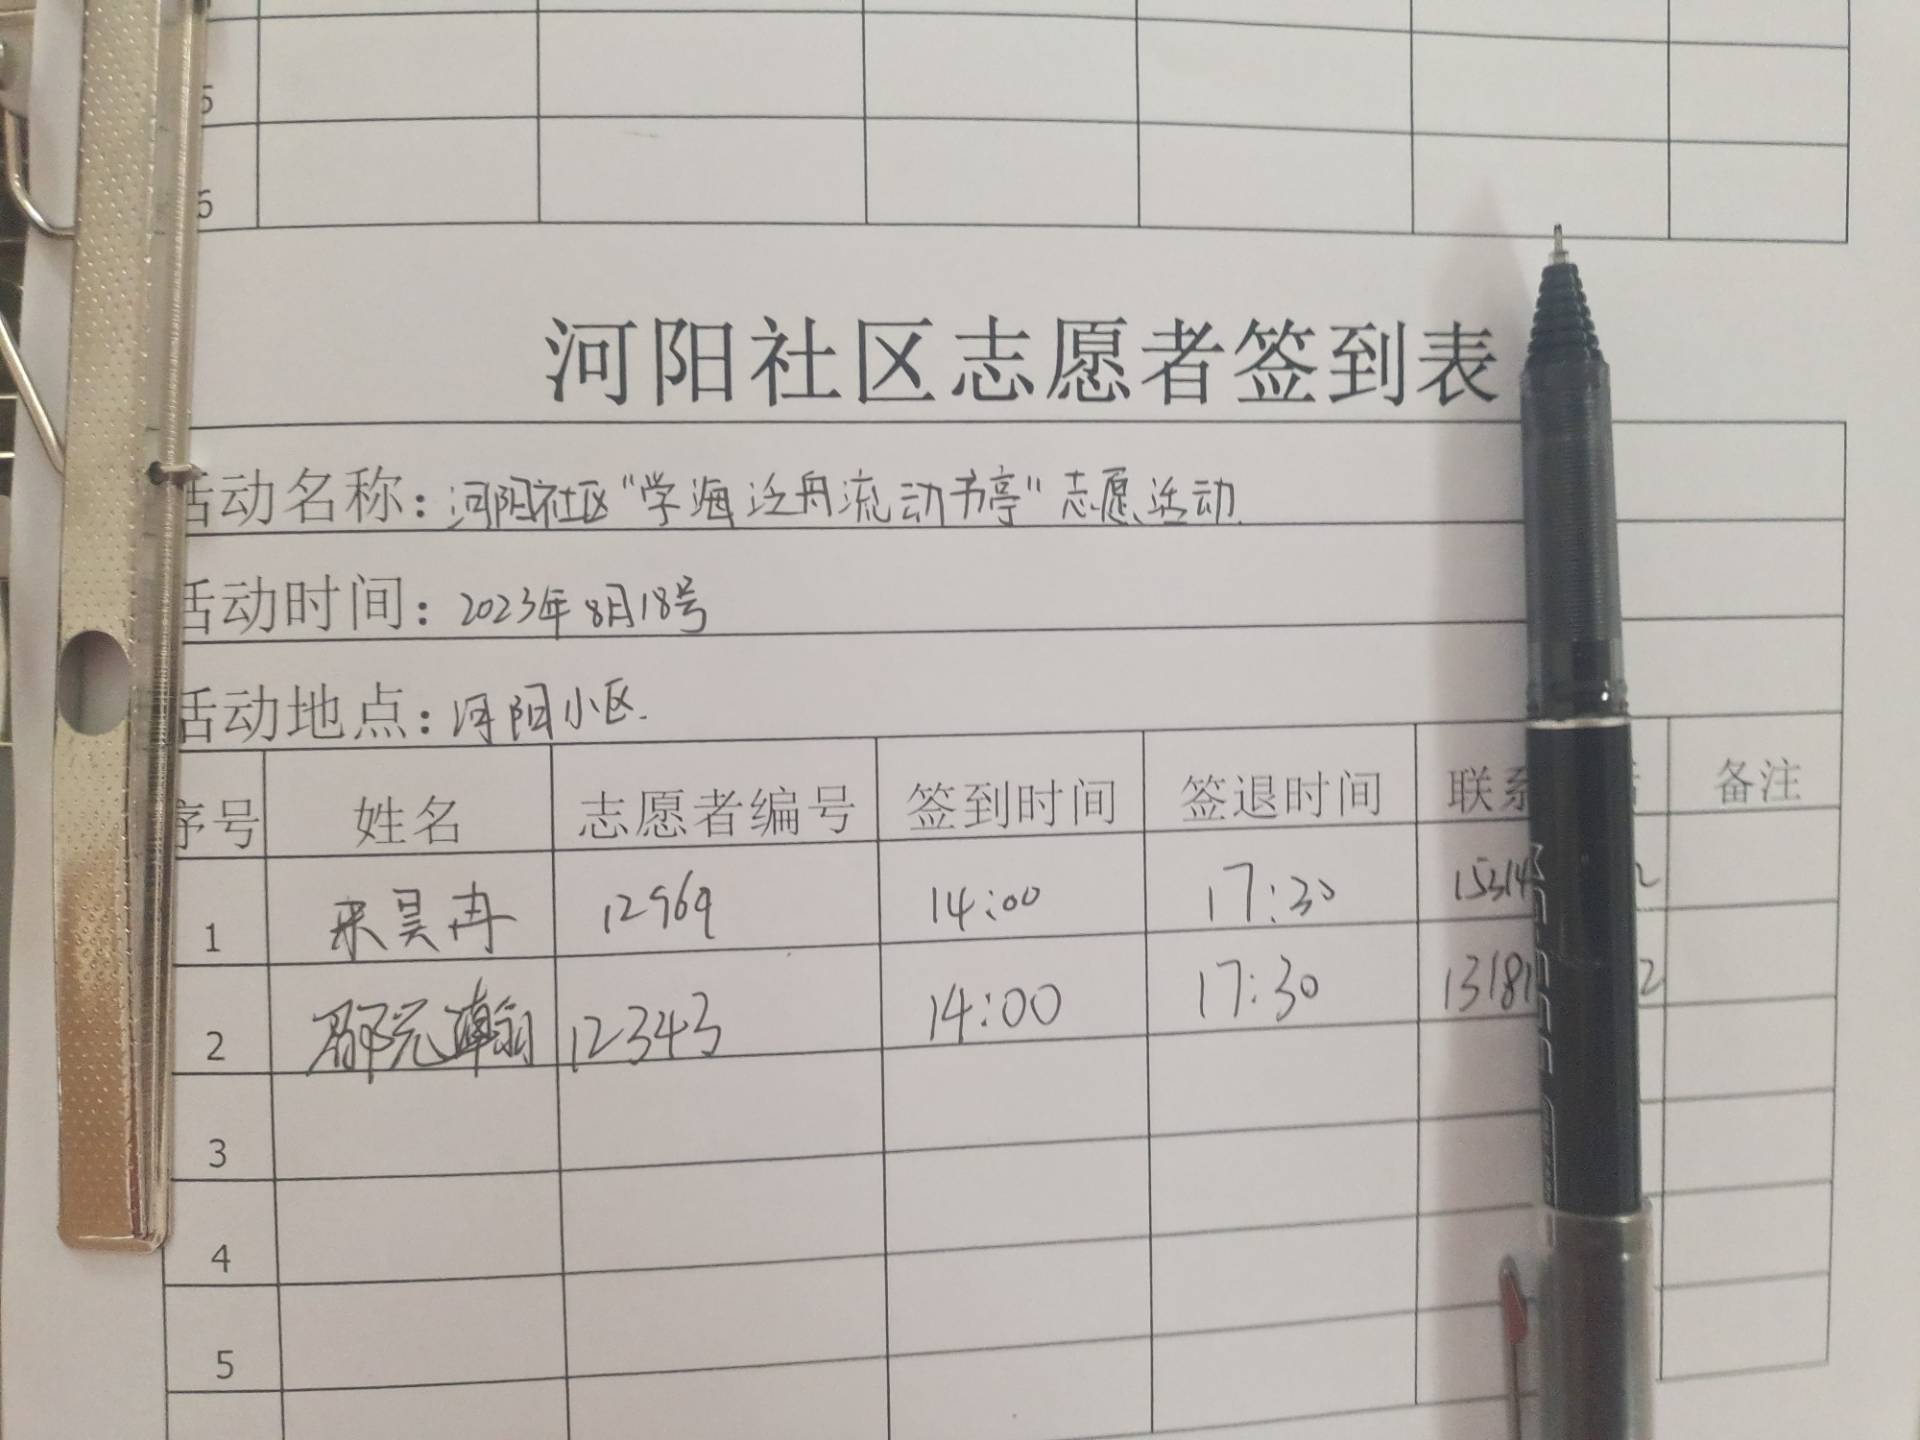 5
6
河阳社区志愿者签到表
活动名称：河阳社区“学海泛舟流动书亭”志愿活动
活动时间：2023年8月18号
活动地点：河阳小区.
序号 姓名 志愿者编号 签到时间 签退时间 联系 备注
1 来昊冉 12969 14:00 17:30 15314 2
2 邵元瀚 12343 14:00 17:30 1318 2
3
4
5